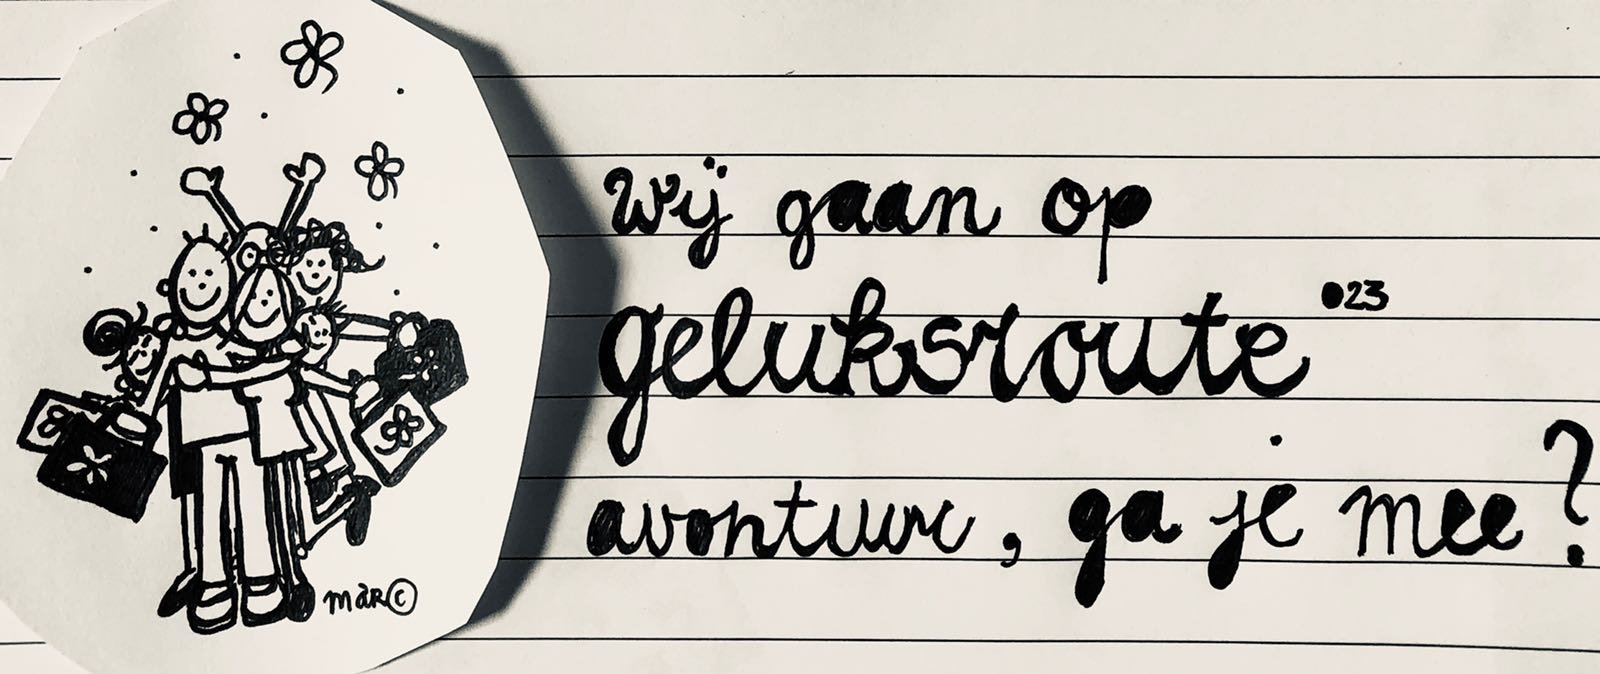 wij gaan op
geluksroute 023
avontuur, ga je mee?
màR©